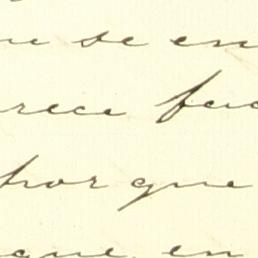 se en
rece
por que
que en